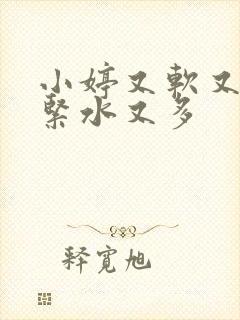 小婷又軟又
緊水又多
释寬旭